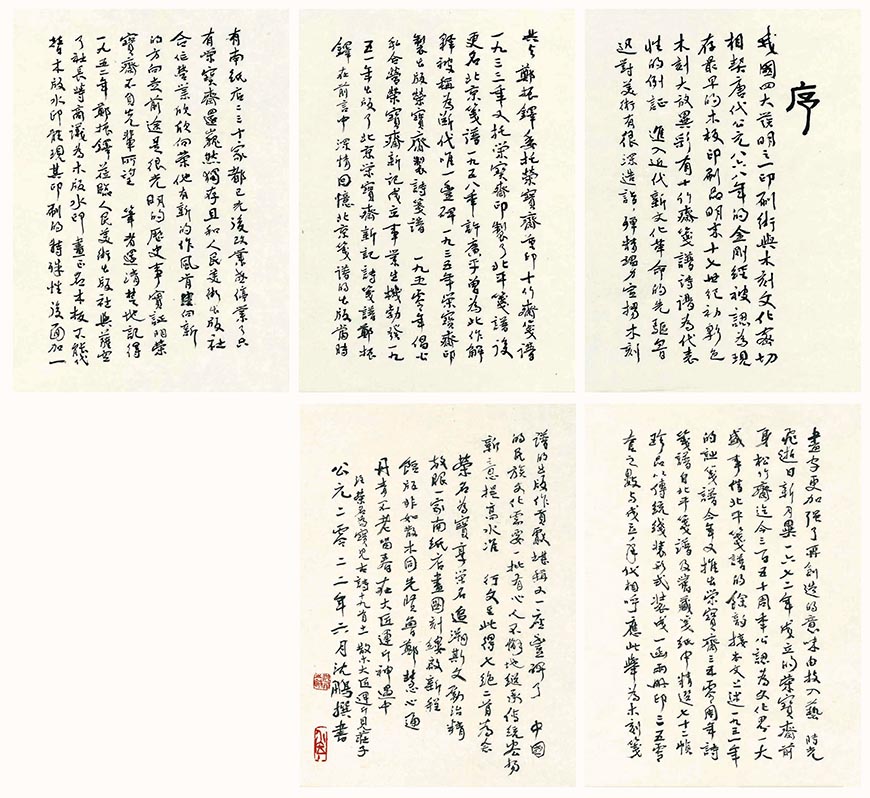 序
我國四大發明之一印刷術與木刻文化密切
相契唐代公元八六八年的金剛經被認為現
存最早的木板印刷品明末十七世纪初彩色
木刻大放異彩有十竹齋箋譜诗谱為代表
性的例証 進入近代新文化革命的先驱魯
迅對美術有很深造詣殫精竭力宣揚木刻
鄭振鐸委托榮寶齋重印十竹齋箋譜
一九三三年又托榮寶齋印製了北平箋譜後
更名北京箋譜一九五八年許廣平曾為此作解
釋被稱為斷代唯一豐碑一九三五年榮寶齋印
製出版榮寶齋製詩箋譜 一九五零年
私合營榮寶齋新記成立事業生機勃發一九
五一年出版了北京榮寶齋新記詩箋譜鄭振
鐸在前言中深情回憶北京箋譜的出版當時
有南紙店二三十家都已先後改業或停業了只
有榮寶齋還巍然獨存且和人民美術出版社
合住營業欣欣向榮他有新的作風肯向新
的方向其前途是很光明的歷史事實証明榮
寶齋不負先輩所望 筆者還清楚地記得
一九五二年鄭振鐸蒞臨人民美術出版社與薩空
了社長特商議為木版水印畫正名木板不能代
替木版水印能現其印刷的特殊性後面加一
畫字更加强了再創造的意味由技入藝 時光
飛逝日新月異一六七二年成立的榮寶齋前
身松竹齋迄今三百五十周年公認為文化界一大
盛事借北平箋譜的餘韵接本文上述一九三一年
的詩箋譜今年又推出榮寶齋三五零周年诗
箋譜自北平箋譜及舊藏箋紙中精選七十二幀
珍品以傳統线裝形式裝成一函兩册印三五零
套之數与成立年代相呼應此舉為木刻箋
譜的出版作貢獻堪稱又一座豐碑了 中國
的民族文化需要一批有心人不断地继承傳統發揚
新意提高水准 行文至此得七绝二首為念
榮名為寶享榮名追溯斯文勤治精
放眼一家南紙店畫圖刻縷啟新程
餖版非如散木同先賢魯鄭慧心通
丹青不老留春在大匠運斤神遇中
注榮名為寶見古詩十九首 散木大匠運斤見莊子
公元二零二二年六月沈鵬撰書